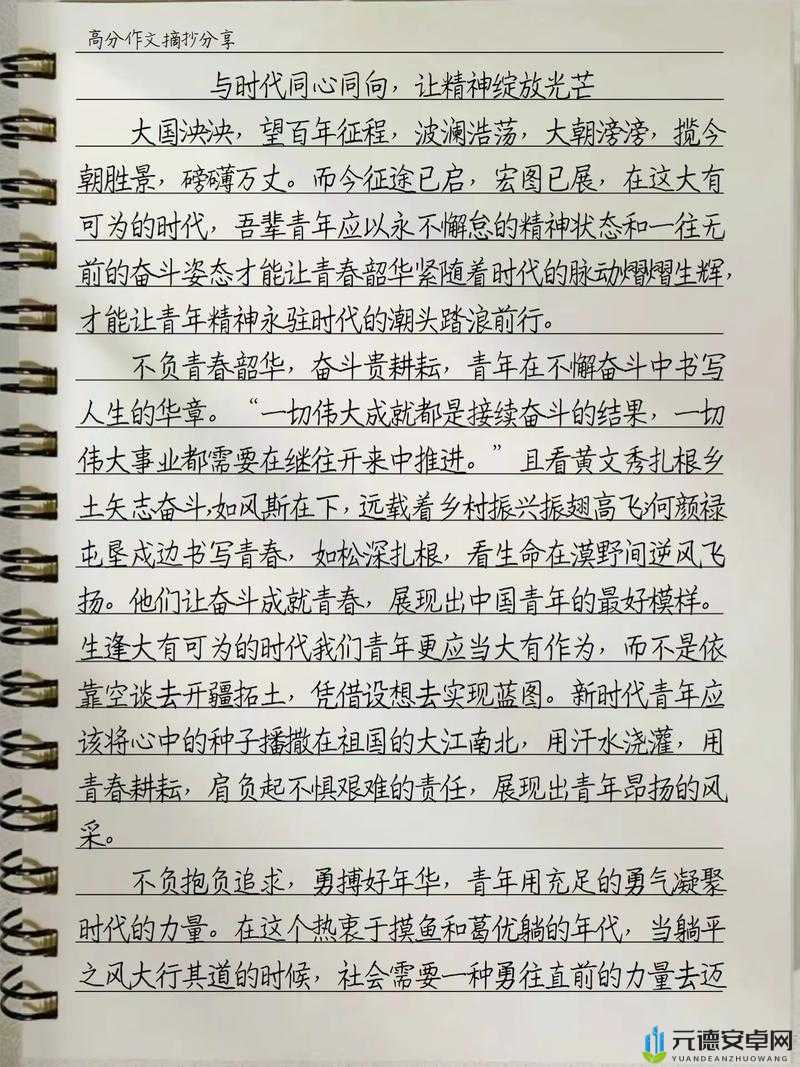 高分作文摘抄分享
与时代同心同向，让精神绽放光芒
大国泱泱，望百年征程，波澜浩荡，大朝滂滂，揽今
朝胜景，磅礴万丈。而今征途已启，宏图已展，在这大有
可为的时代，吾辈青年应以永不懈怠的精神状态和一往无
前的奋斗姿态才能让青春韶华紧随着时代的脉动熠熠生辉，
才能让青年精神永驻时代的潮头踏浪前行。
不负青春韶华，奋斗贵耕耘，青年在不懈奋斗中书写
人生的华章。“一切伟大成就都是接续奋斗的结果，一切
伟大事业都需要在继往开来中推进。”且看黄文秀扎根乡
土矢志奋斗，如风斯在下，远载着乡村振兴振翅高飞；何颜禄
屯垦戍边书写青春，如松深扎根，看生命在漠野间逆风飞
扬。他们让奋斗成就青春，展现出中国青年的最好模样。
生逢大有可为的时代我们青年更应当大有作为，而不是依
靠空谈去开疆拓土，凭借设想去实现蓝图。新时代青年应
该将心中的种子播撒在祖国的大江南北，用汗水浇灌，用
青春耕耘，肩负起不惧艰难的责任，展现出青年昂扬的风
采。
不负抱负追求，勇搏好年华，青年用充足的勇气凝聚
时代的力量。在这个热衷于摸鱼和葛优躺的年代，当躺平
之风大行其道的时候，社会需要一种勇往直前的力量去迈
元德安卓网
YUANDEANZHUOWANG